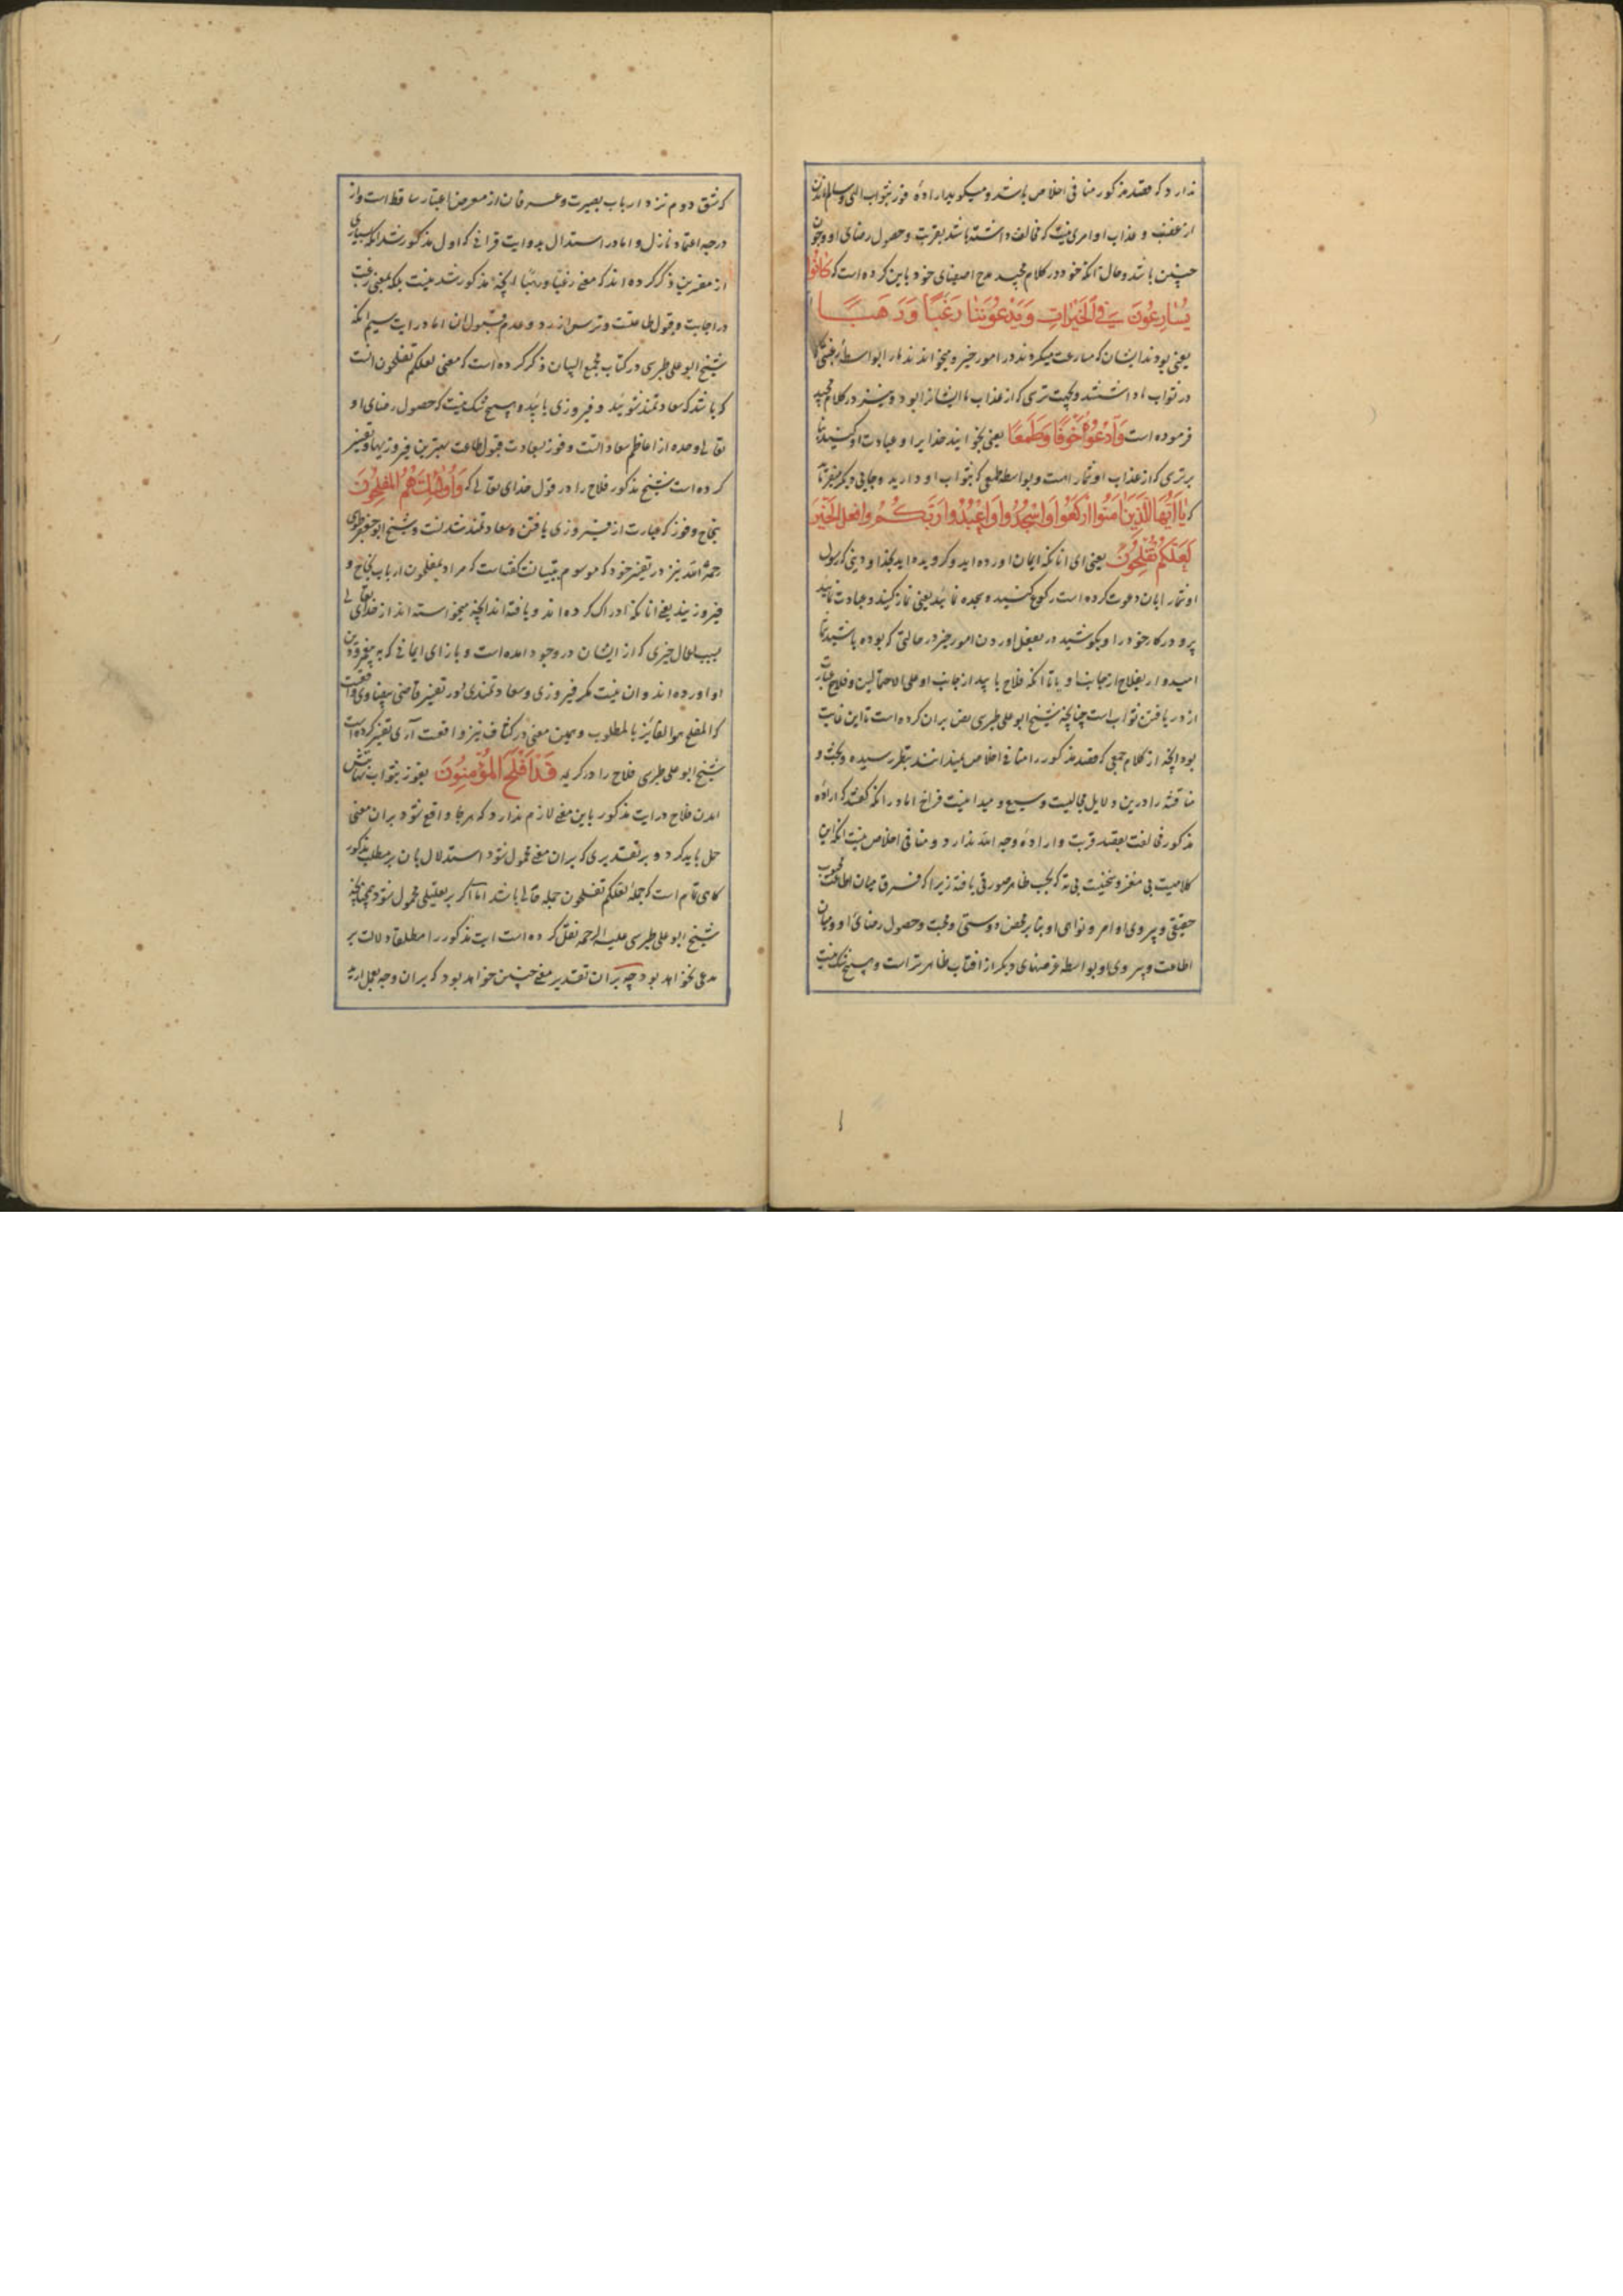 ندارد که قصد مذکور منافی اخلاص باشد و میکوید اراده فوز بثواب الهی و سالم ماندن
از غضب و عذاب او امری نیست که مخالف داشته باشد بقربت و حصول رضای او و چون
چنین باشد و حال آنکه خود در کلام مجید مدح اصفیای خود باین کرده است که كَانُوا
يُسَارِعُونَ فِي الْخَيْرَاتِ وَيَدْعُونَنَا رَغَبًا وَرَهَبًا
یعنی بودند ایشان که مسارعت میکردند در امور خیر و میخواندند ما را بواسطه رغبتی که
در ثواب ما داشتند و بجهت ترسی که از عذاب ما ایشانرا بود و نیز در کلام مجید
فرموده است وَادْعُوهُ خَوْفًا وَطَمَعًا یعنی بخوانید خدایرا و عبادت او کنید بنا
بر ترسی که از عذاب او شما راست و بواسطه طمعی که بثواب او دارید و جایی دیکر میفرماید
که يَا أَيُّهَا الَّذِينَ آمَنُوا ارْكَعُوا وَاسْجُدُوا وَاعْبُدُوا رَبَّكُمْ وَافْعَلُوا الْخَيْرَ
لَعَلَّكُمْ تُفْلِحُونَ یعنی ای انانکه ایمان اورده اید و کرویده اید بخدا و دینی که رسول
او شما را بان دعوت کرده است رکوع کنید و سجده نمائید یعنی نماز کنید و عبادت نمائید
پروردکار خود را و بکوشید در بفعل اوردن امور خیر در حالتی که بوده باشید شما
امیدوار بفلاح از جانب او یا تا آنکه فلاح یابید از جانب او علی الاحتمالین و فلاح عبارت
از دریافتن ثواب است چنانچه شیخ ابو علی طبرسی نص بران کرده است تا این غایت
بود انچه از کلام جمعی که قصد مذکور را منافی اخلاص نمیدانند بنظر رسیده و بحث و
مناقشه را درین دلایل مجالیست وسیع و میدانیست فراخ اما در انکه کفتند که اراده
مذکور مخالفت بقصد قربت و اراده وجه الله ندارد و منافی اخلاص نیست انکه این
کلامیست بی مغز و سخنیست بی ته که بحسب ظاهر صورتی یافته زیرا که فرق میان اطاعت محبوب
حقیقی و پیروی اوامر و نواهی او بنا بر محض دوستی و محبت و حصول رضای او و میان
اطاعت و پیروی او بواسطه غرضهای دیکر از افتاب ظاهرتر است و هیچ شک نیست
که شق دوم نزد ارباب بصیرت و عرفان از معرض اعتبار ساقط است و از
درجه اعتماد نازل و اما در استدلال بدو ایت قرانی که اول مذکور شد انکه بسیاری
از مفسرین ذکر کرده اند که معنی رغبا و رهبا انچه مذکور شد نیست بلکه بمعنی رغبت
در اجابت و قبول طاعتست و ترس از رد و عدم قبول ان اما در ایت سیم انکه
شیخ ابو علی طبرسی در کتاب مجمع البیان ذکر کرده است که معنی لعلکم تفلحون انست
که باشد که سعادتمند شوید و فیروزی یابید و هیچ شک نیست که حصول رضای او
تعالی وحده از اعاظم سعاداتست و فوز بسعادت قبول طاعت بهترین فیروزیها و تفسیر
کرده است شیخ مذکور فلاح را در قول خدای تعالی که وَأُولَئِكَ هُمُ الْمُفْلِحُونَ
بنجاح و فوز که عبارت از فیروزی یافتن و سعادتمند شدنست و شیخ ابو جعفر طوسی
رحمه الله نیز در تفسیر خود که موسوم بتبیانست کفتاست که مراد بمفلحون ارباب نجاح و
فیروزیند یعنی انانکه ادراک کرده اند و یافته اند انچه میخواسته اند از خدای تعالی
بسبب اعمال خیری که از ایشان در وجود امده است و بازای ایمانی که به
او اورده اند و ان نیست مکر فیروزی و سعادتمندی و در تفسیر قاضی بیضاوی واقعست
که المفلح هو الفائز بالمطلوب و همین معنی در کشاف نیز واقعست آری تفسیر کرده است
شیخ ابو علی طبرسی فلاح را در کریمه قَدْ أَفْلَحَ الْمُؤْمِنُونَ بفوز بثواب
امدن فلاح در ایت مذکور باین معنی لازم ندارد که هر جا واقع شود بران معنی
حمل باید کرد و بر تقدیری که بران معنی محمول شود استدلال بان بر مطلب مذکور
کاهی تمام است که جمله لعلکم تفلحون جمله حالی باشد اما اکر بر تعلیلی محمول شود همچنانچه
شیخ ابو علی طبرسی علیه الرحمه نقل کرده است ایت مذکور را مطلقا دلالت بر
مدعی نخواهد بود چه بران تقدیر معنی چنین خواهد بود که بران وجه بعمل ارید